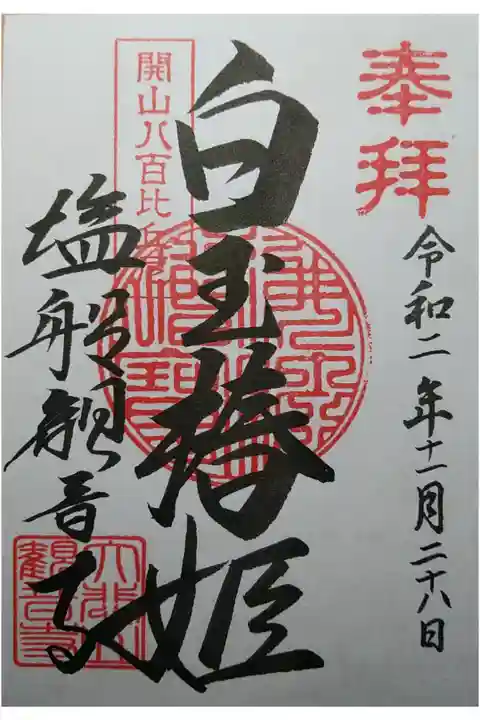 奉拝
令和二年十一月二十八日
白玉椿姫
開山八百比
塩船観音寺
大悲山
觀音寺